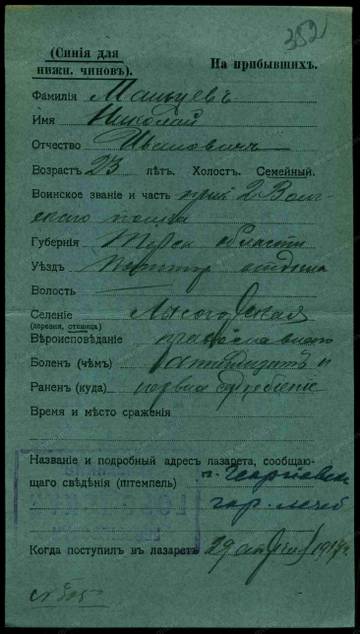 352
(Синія для
нижн. чиновъ).
На прибывшихъ.
Фамилія Мальцевъ
Имя Николай
Отчество Ивановичъ
Возрастъ 23 лѣтъ. Холост. Семейный.
Воинское званіе и часть 2 Волг-
скаго полка
Губернія Терск области
Уѣздъ отдѣла
Волость
Селеніе Лысогорская
(деревня, станица)
Вѣроисповѣданіе православнаго
Боленъ (чѣмъ)
Раненъ (куда)
Время и мѣсто сраженія
Названіе и подробный адресъ лазарета, сообщаю-
щаго свѣдѣнія (штемпель) г. Георгіевск
гор. лечеб
Когда поступилъ въ лазаретъ 29 апрѣля 1917 г.